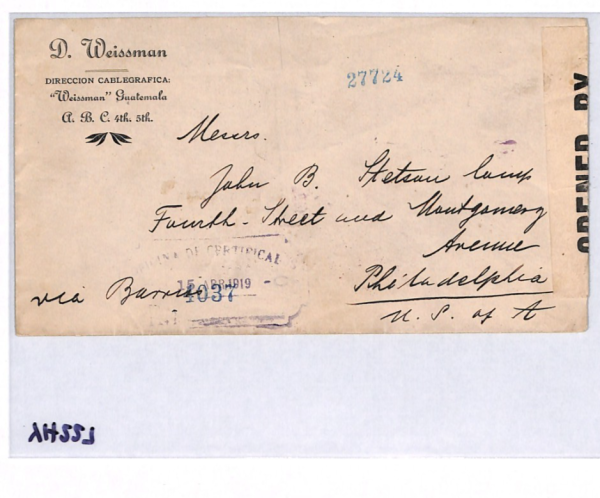 D. Weissman
DIRECCION CABLEGRAFICA:
"Weissman" Guatemala
A. B. C. 4th. 5th.
27724
OPENED BY
Messrs.
John B. Stetson Comp
Fourth-Street and Montgomery
Avenue
Philadelphia
U. S. of A
via Barrios
OFICINA DE CERTIFICAD
15 ABR 1919
4037